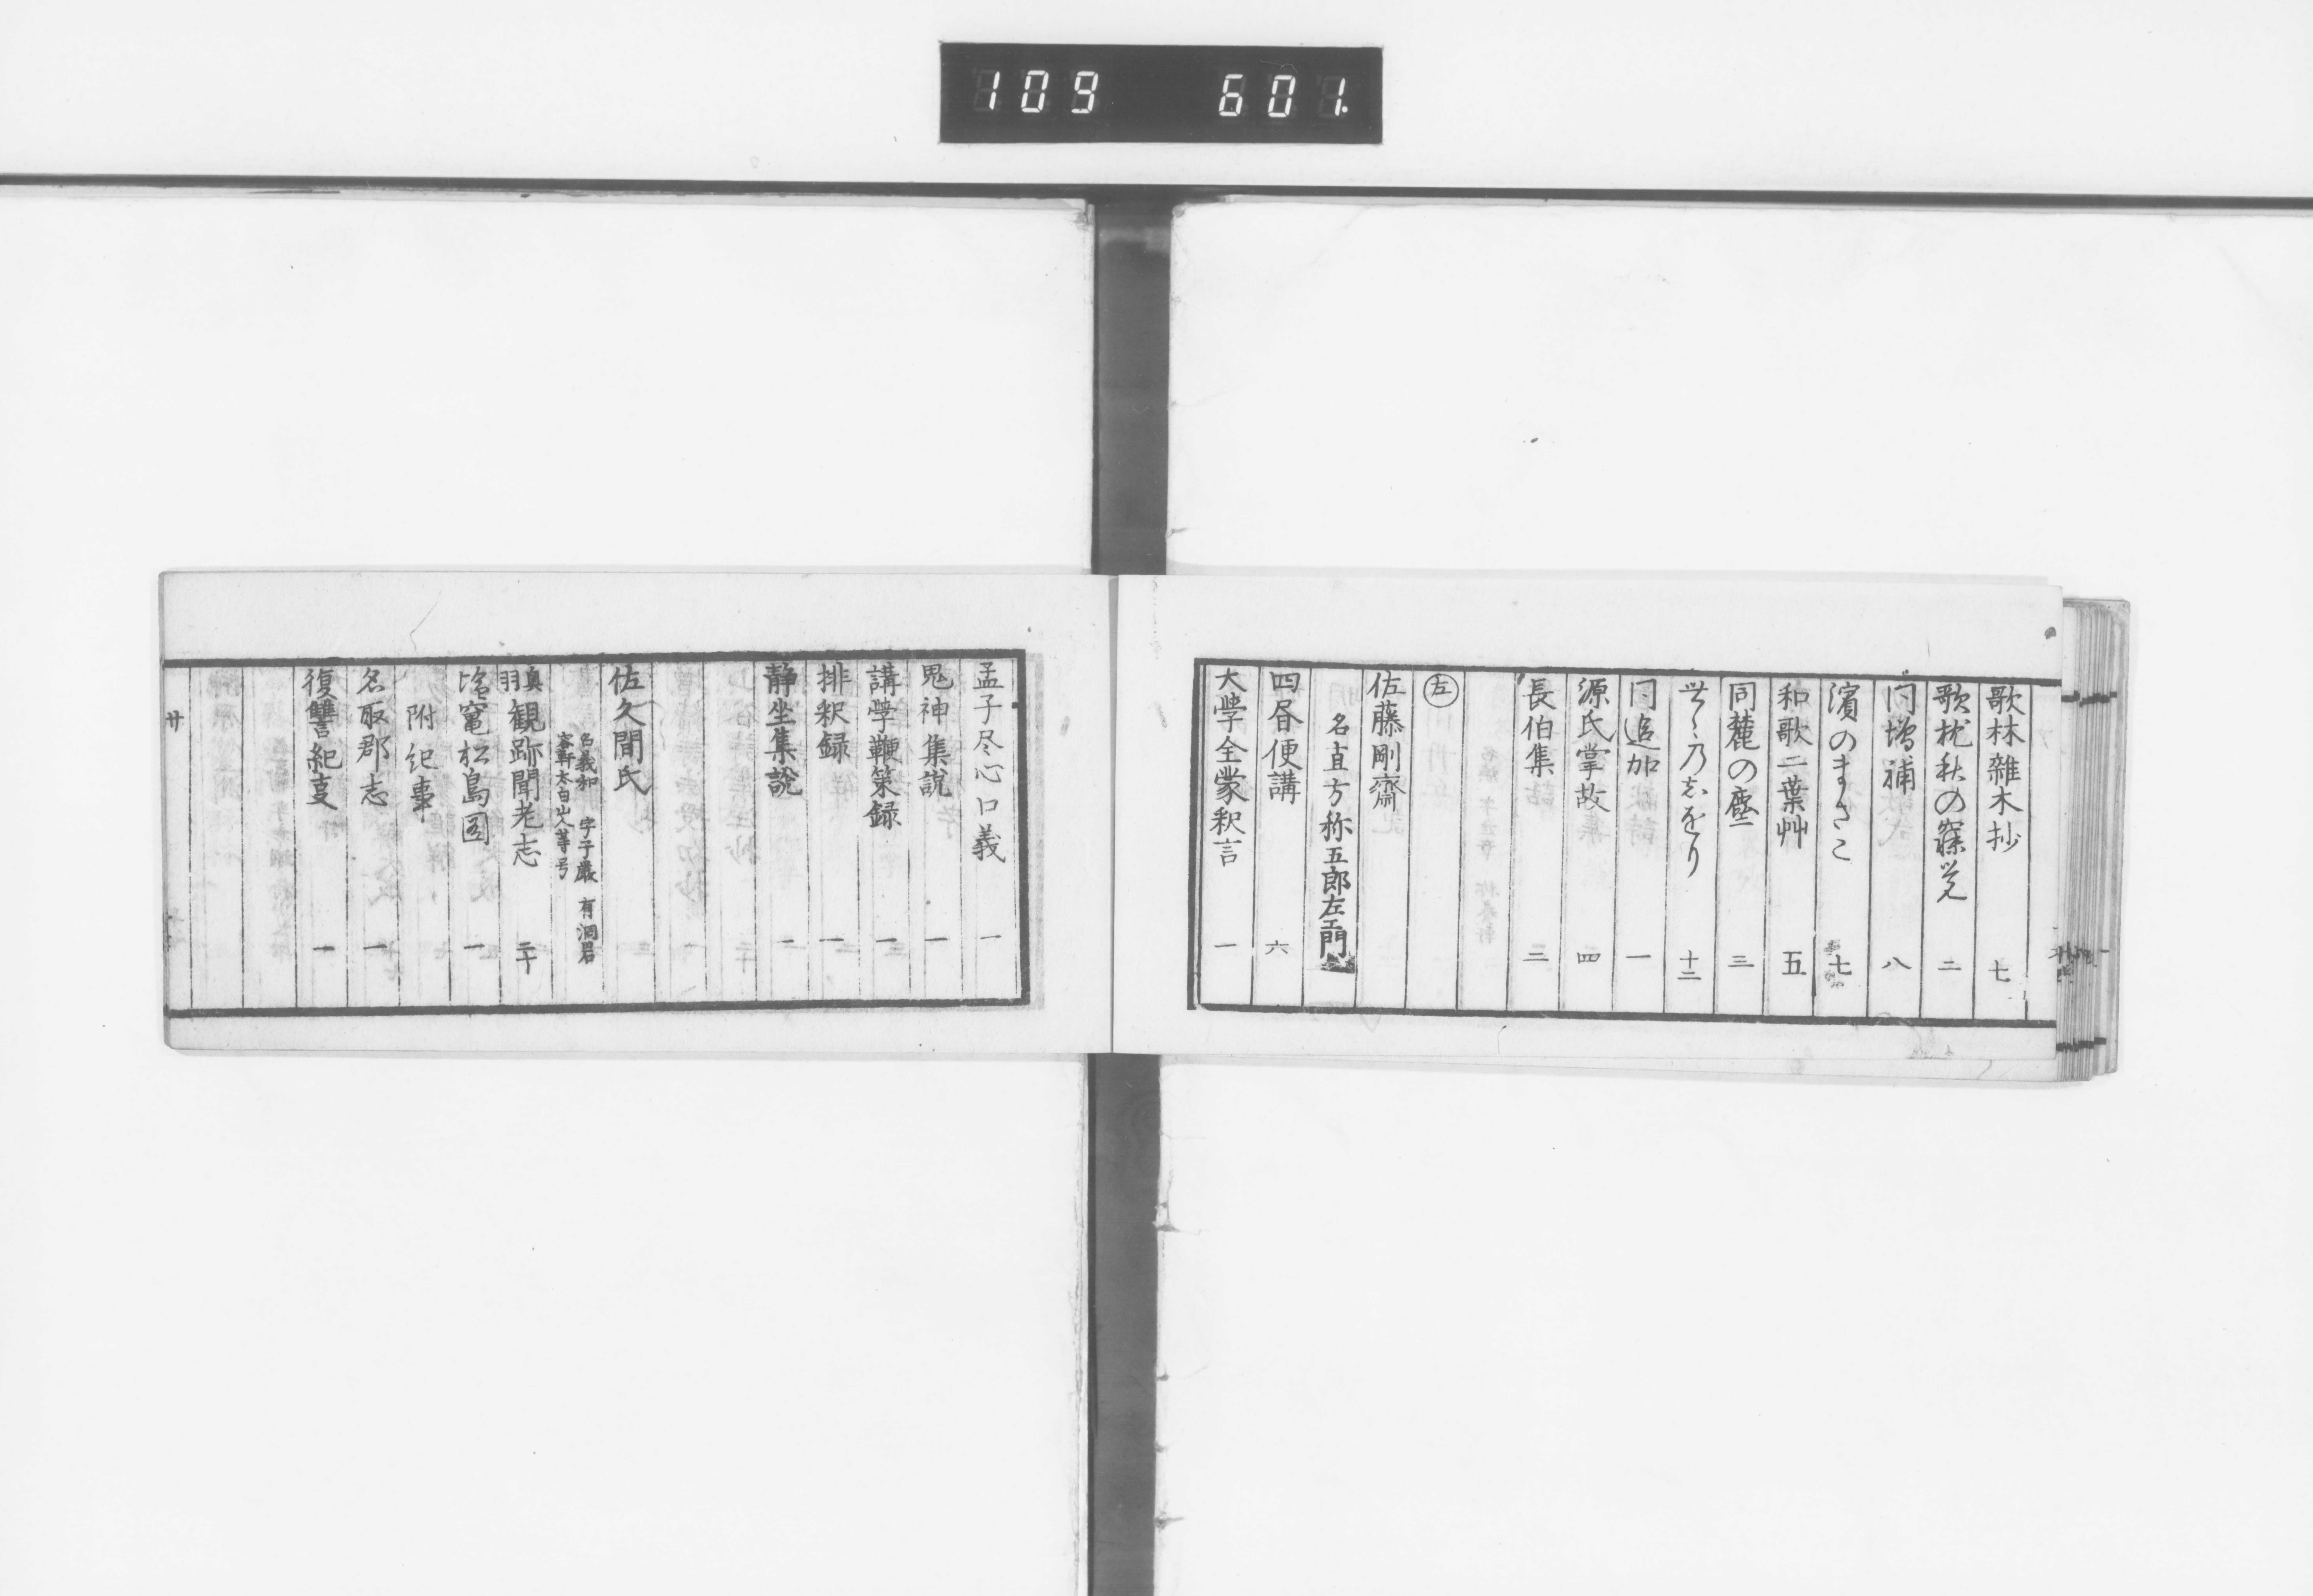 109 601.
歌林雜木抄 七
歌枕秋の寐覚 二
同増補 八
濱のまさこ 七
和歌二葉艸 五
同麓の塵 三
世々乃志をり 十二
同追加 一
源氏掌故 四
長伯集 三
左
佐藤剛齋
名直方称五郎左衛門
四㫺便講 六
大學全蒙釈言 一
孟子尽心口義 一
鬼神集説 一
講學鞭策録 一
排釈録 一
静坐集說 一
佐久間氏
名義和 字子巖 有洞岩
容軒太白山人等号
奥羽観跡聞老志 二十
塩竃松島圖 一
附紀事
名取郡志 一
復讐紀事 一
廿